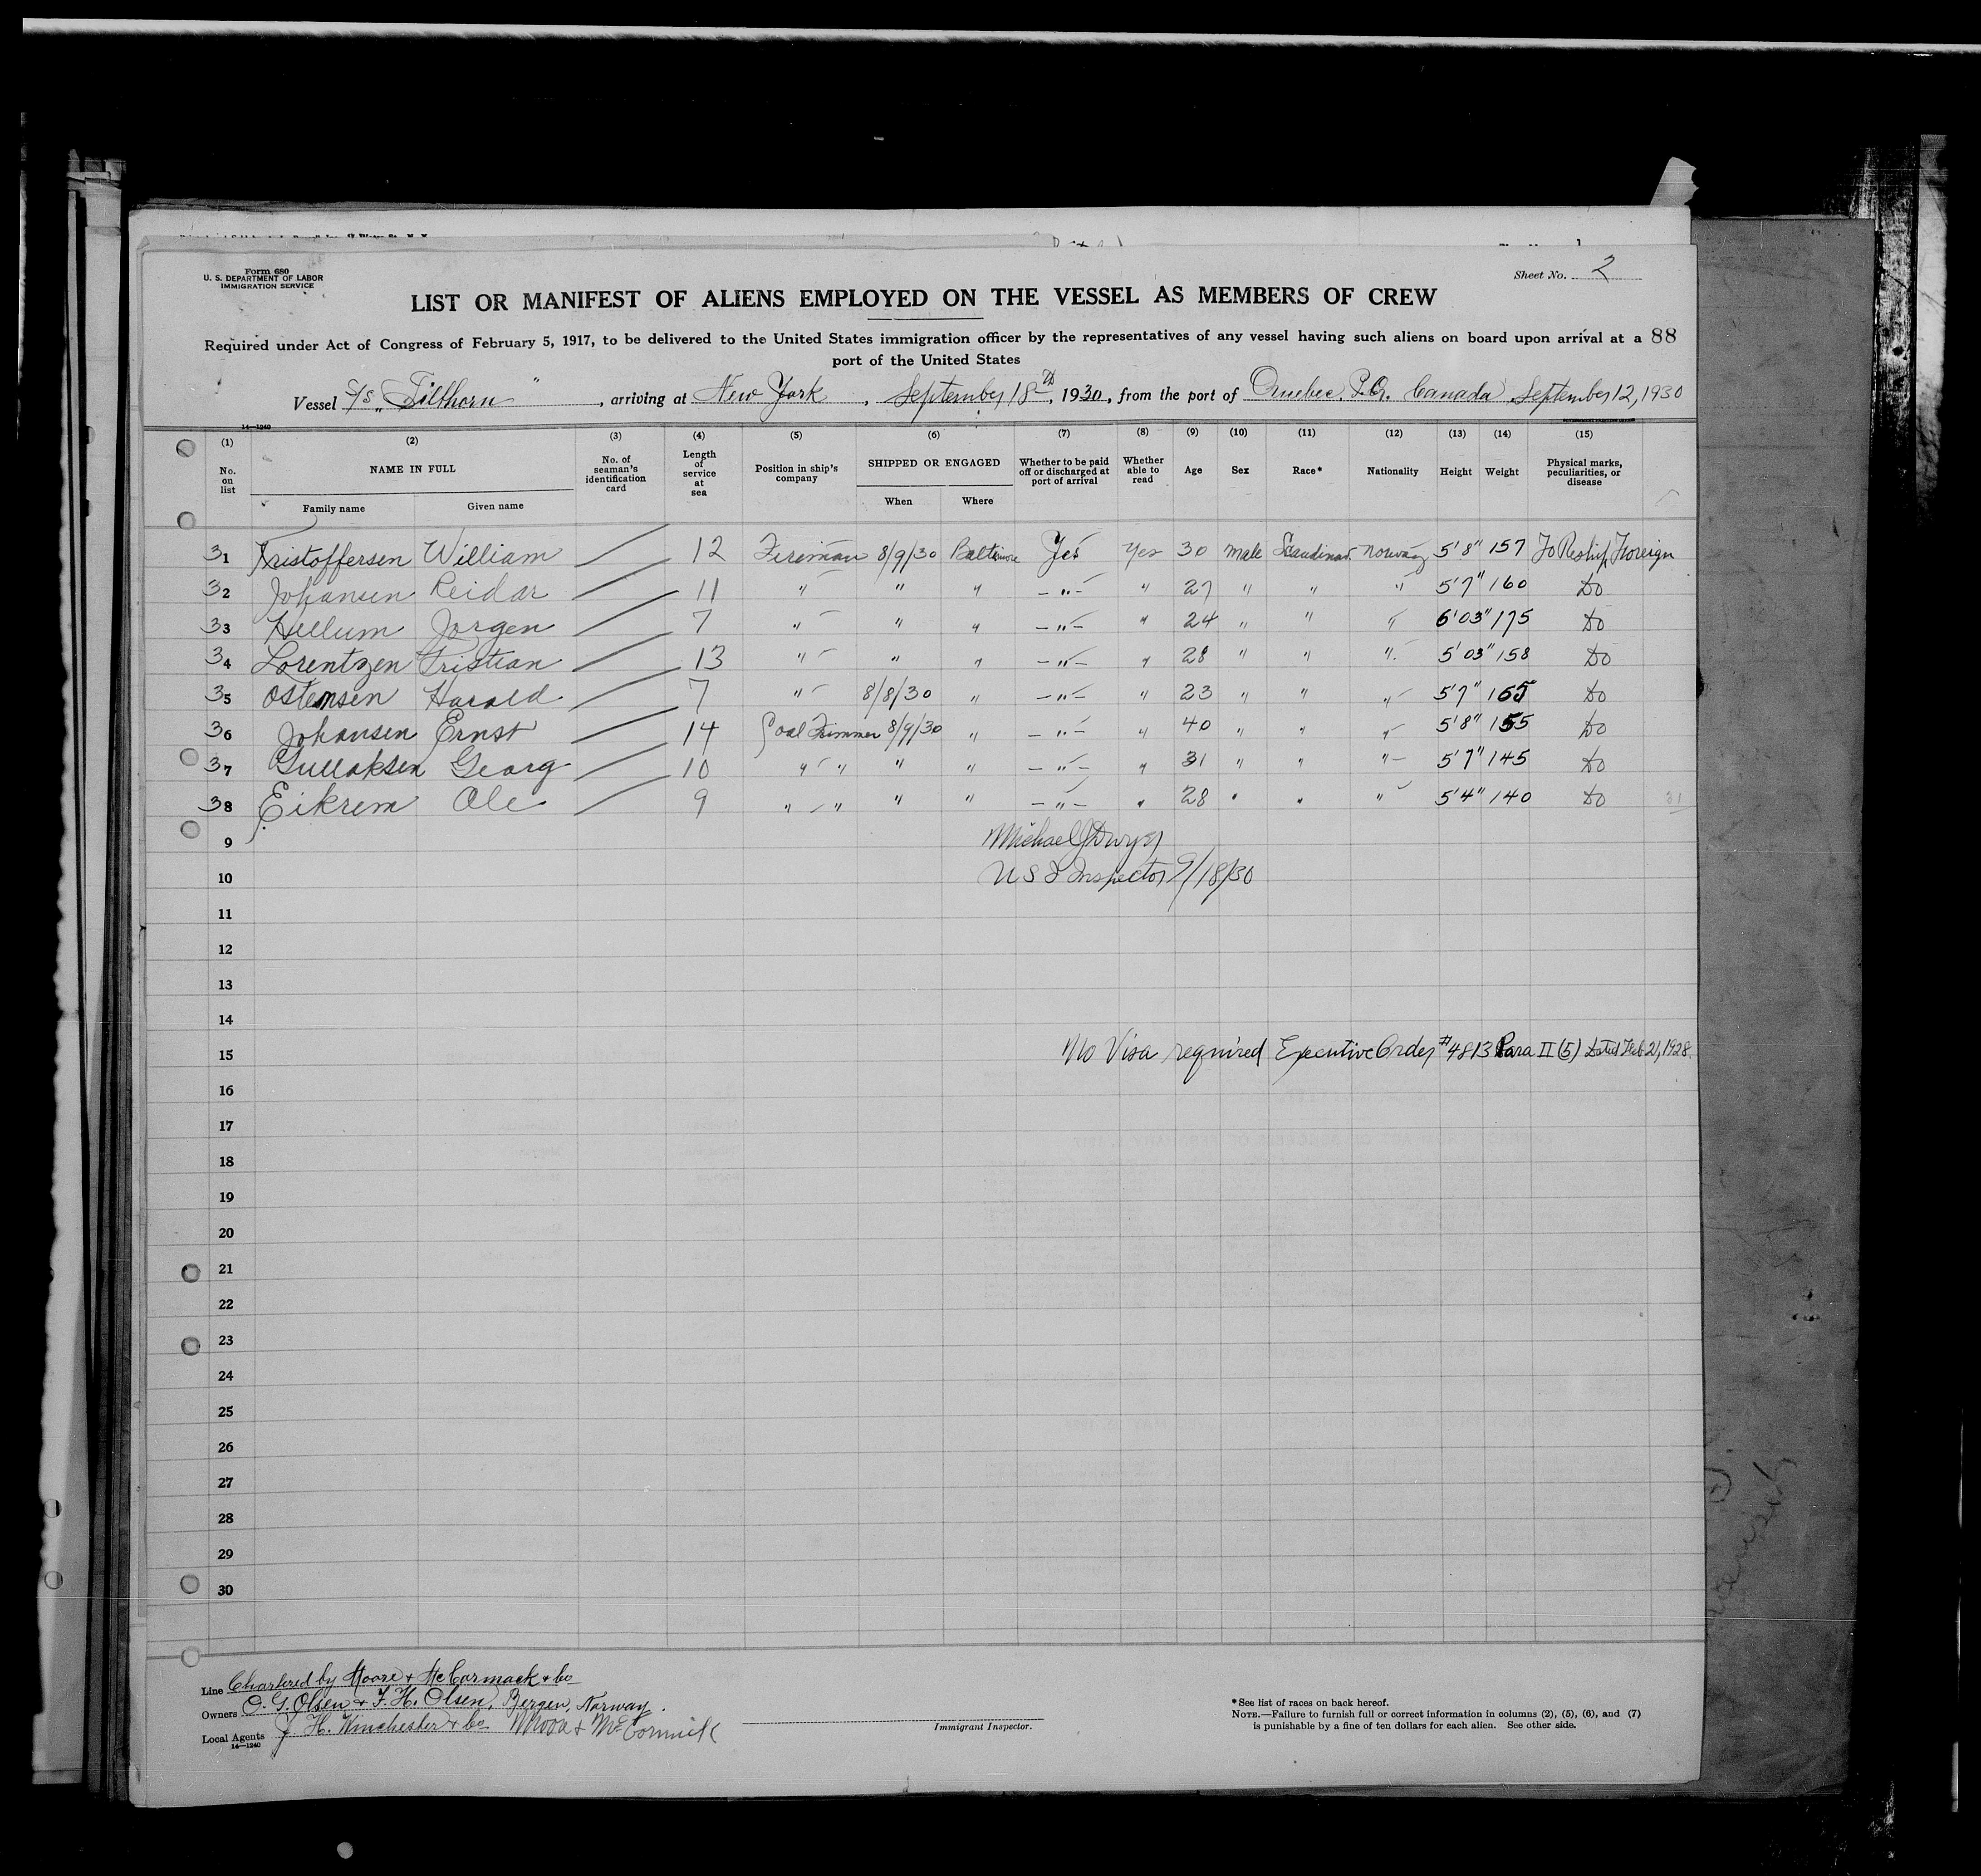 Form 680
U. S. DEPARTMENT OF LABOR
IMMIGRATION SERVICE
Sheet No. 2
LIST OR MANIFEST OF ALIENS EMPLOYED ON THE VESSEL AS MEMBERS OF CREW
Required under Act of Congress of February 5, 1917, to be delivered to the United States immigration officer by the representatives of any vessel having such aliens on board upon arrival at a 88
port of the United States
Vessel S/S "Tilthorn", arriving at New York, September 18th, 1930, from the port of Quebec. P.Q. Canada September 12, 1930
14—1240
(1) (2) (3) (4) (5) (6) (7) (8) (9) (10) (11) (12) (13) (14) (15)
No. on list NAME IN FULL Family name Given name No. of seaman's identification card Length of service at sea Position in ship's company SHIPPED OR ENGAGED When Where Whether to be paid off or discharged at port of arrival Whether able to read Age Sex Race* Nationality Height Weight Physical marks, peculiarities, or disease
31 Kristoffersen William 12 Fireman 8/9/30 Baltimore Yes Yes 30 male Scandinav. Norway 5'8" 157 To Reship Foreign
32 Johansen Reidar 11 " " " — " — " 27 " " " 5'7" 160 Do
33 Hellum Jorgen 7 " " " — " — " 24 " " " 6'03" 175 Do
34 Lorentzen Kristian 13 " " " — " — " 28 " " " 5'03" 158 Do
35 Ostensen Harald 7 " 8/8/30 " — " — " 23 " " " 5'7" 165 Do
36 Johansen Ernst 14 Coal Trimmer 8/9/30 " — " — " 40 " " " 5'8" 155 Do
37 Gullaksen Georg 10 " " " " — " — " 31 " " " 5'7" 145 Do
38 Eikrem Ole 9 " " " " — " — " 28 " " " 5'4" 140 Do 31
9 Michael J Dwyer
10 U S I Inspector 9/18/30
11
12
13
14
15 No Visa required Executive Order #4813 Para II (5) Dated Feb 21, 1928
16
17
18
19
20
21
22
23
24
25
26
27
28
29
30
Line Chartered by Moore & McCormack & Co
Owners O. G. Olsen & F. H. Olsen, Bergen, Norway.
Local Agents J. H. Winchester & Co Moore & McCormick
14—1240
Immigrant Inspector.
*See list of races on back hereof.
NOTE.—Failure to furnish full or correct information in columns (2), (5), (6), and (7)
is punishable by a fine of ten dollars for each alien. See other side.